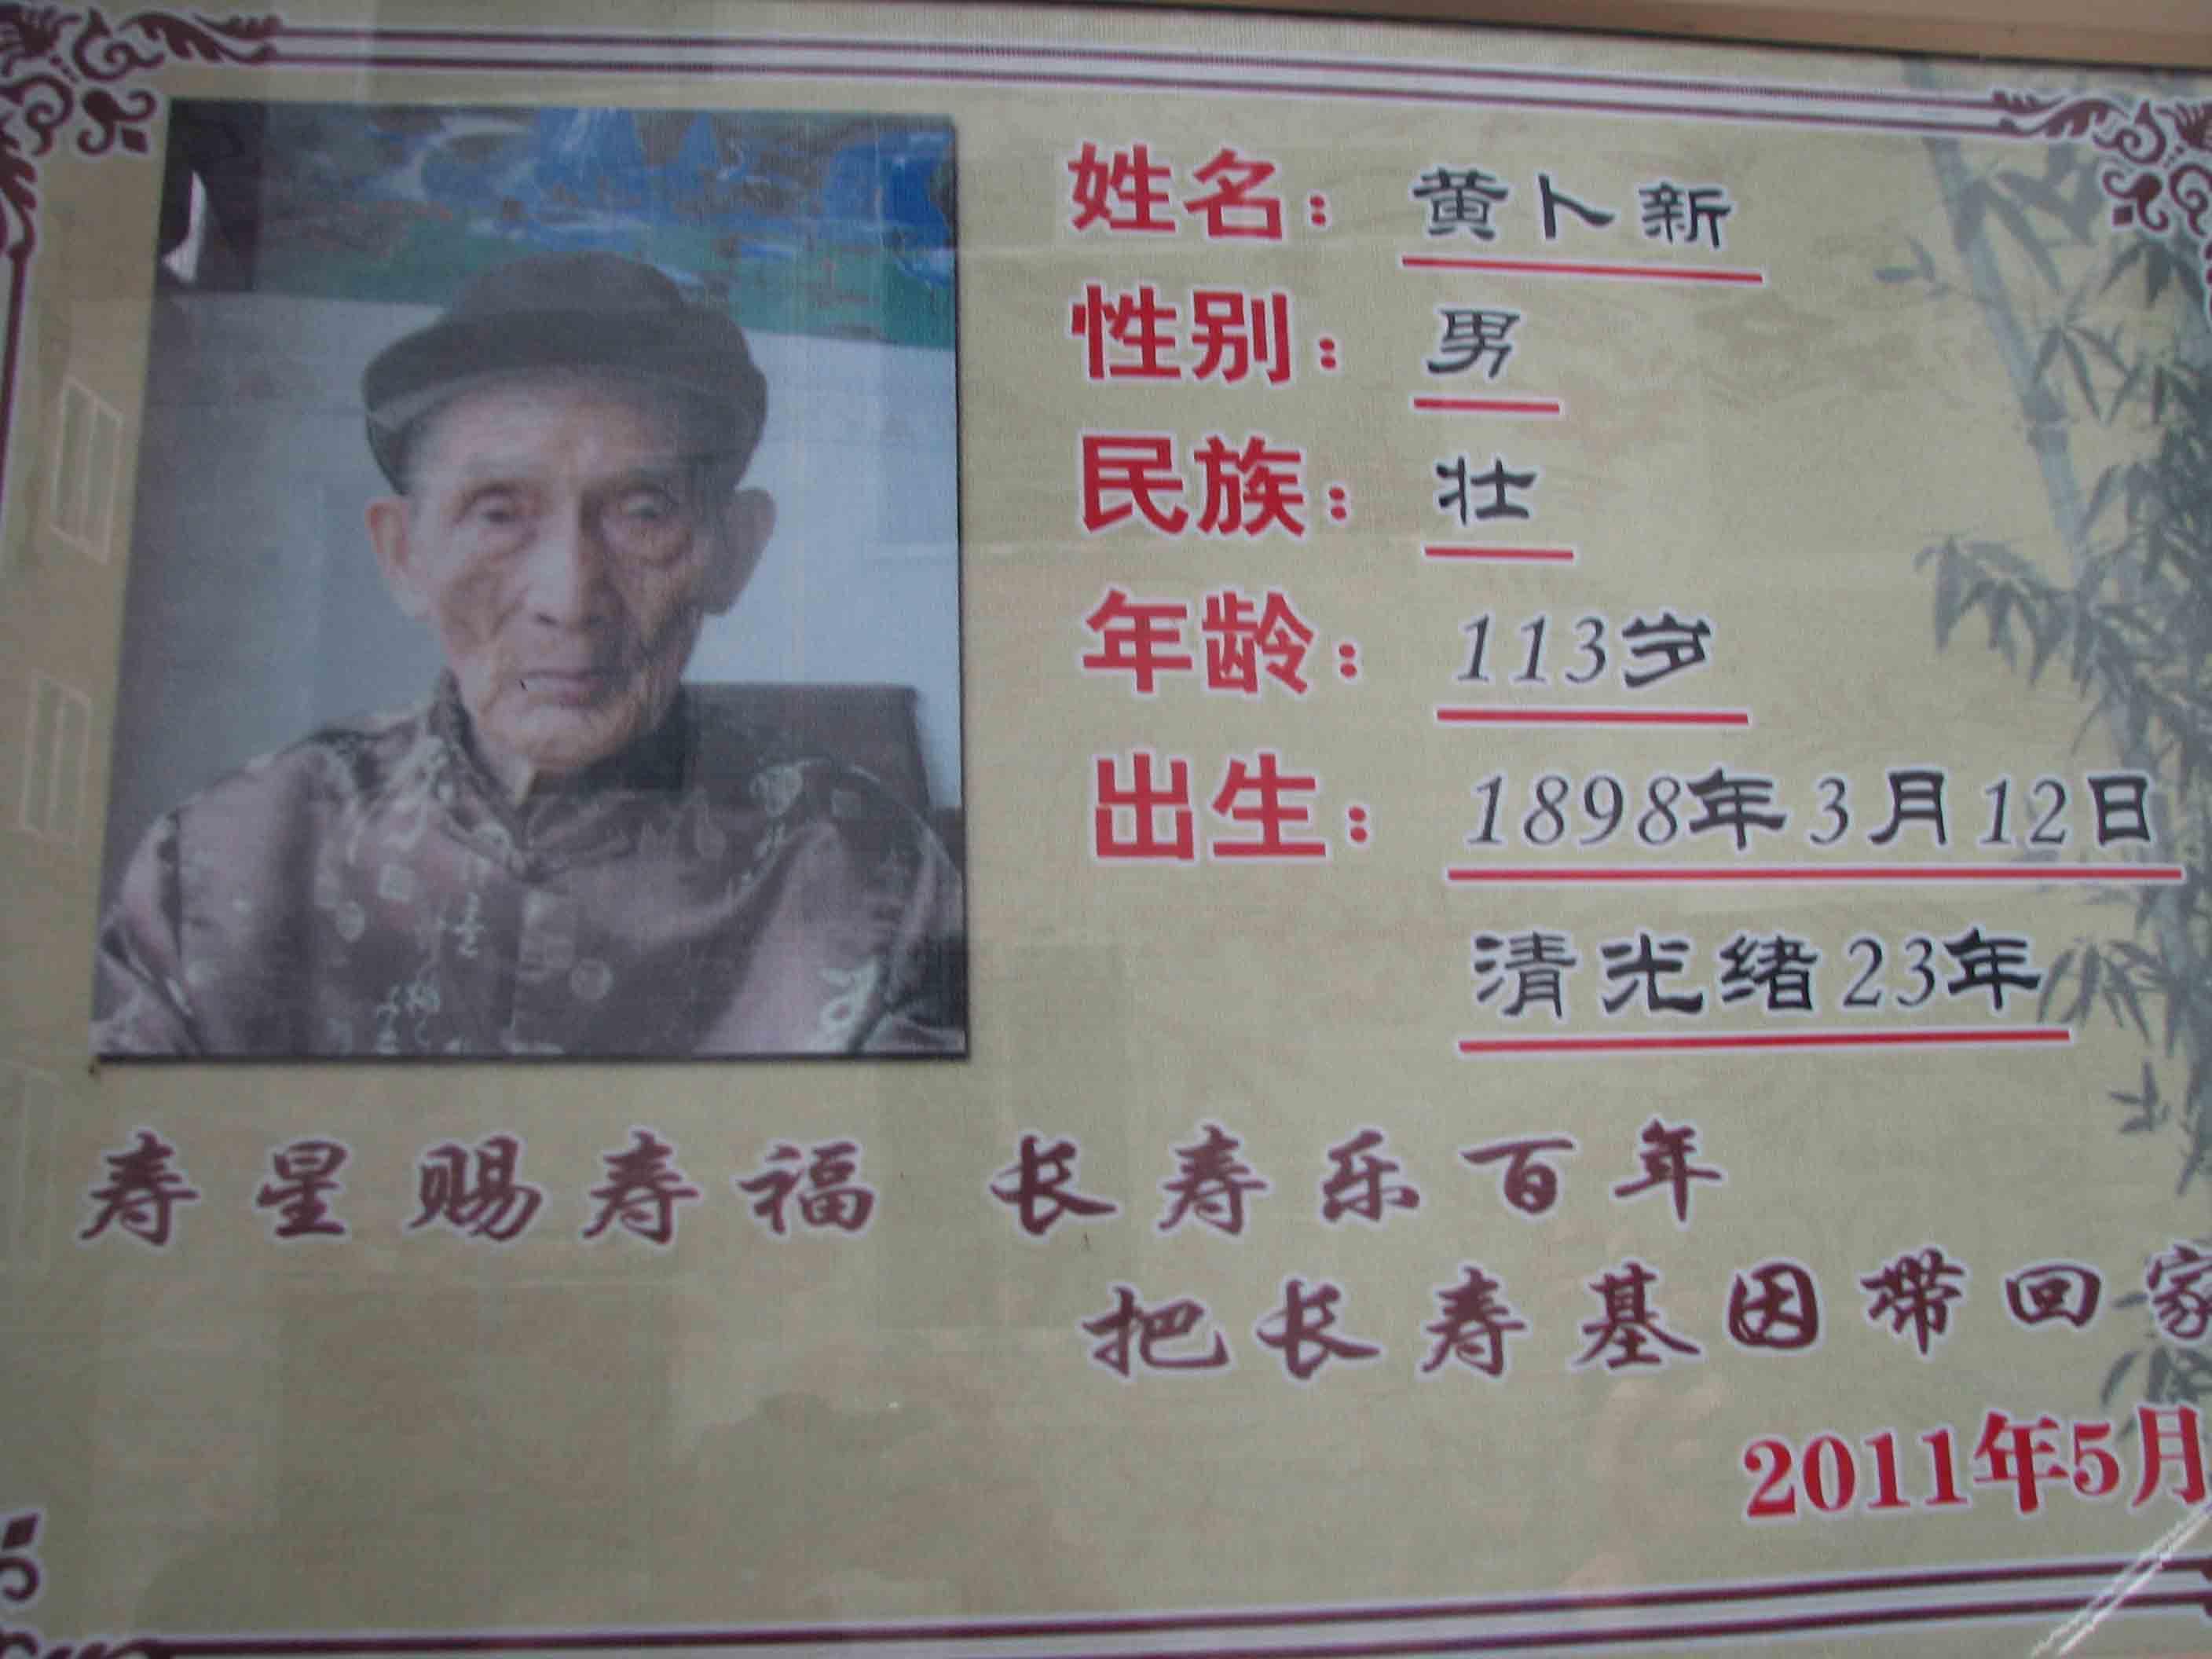 姓名：黄卜新
性别：男
民族：壮
年龄：113岁
出生：1898年3月12日
清光绪23年
寿星赐寿福 长寿乐百年
把长寿基因带回家
2011年5月